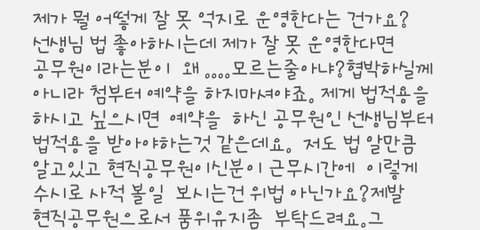 제가 뭘 어떻게 잘 못 억지로 운영한다는 건가요?
선생님 법 좋아하시는데 제가 잘 못 운영한다면
공무원이라는분이 왜 ....모르는줄아냐?협박하실께
아니라 첨부터 예약을 하지마셔야죠. 제게 법적용을
하시고 싶으시면 예약을 하신 공무원인 선생님부터
법적용을 받아야하는것 같은데요. 저도 법 알만큼
알고있고 현직공무원이신분이 근무시간에 이렇게
수시로 사적 볼일 보시는건 위법 아닌가요?제발
현직공무원으로서 품위유지좀 부탁드려요.그